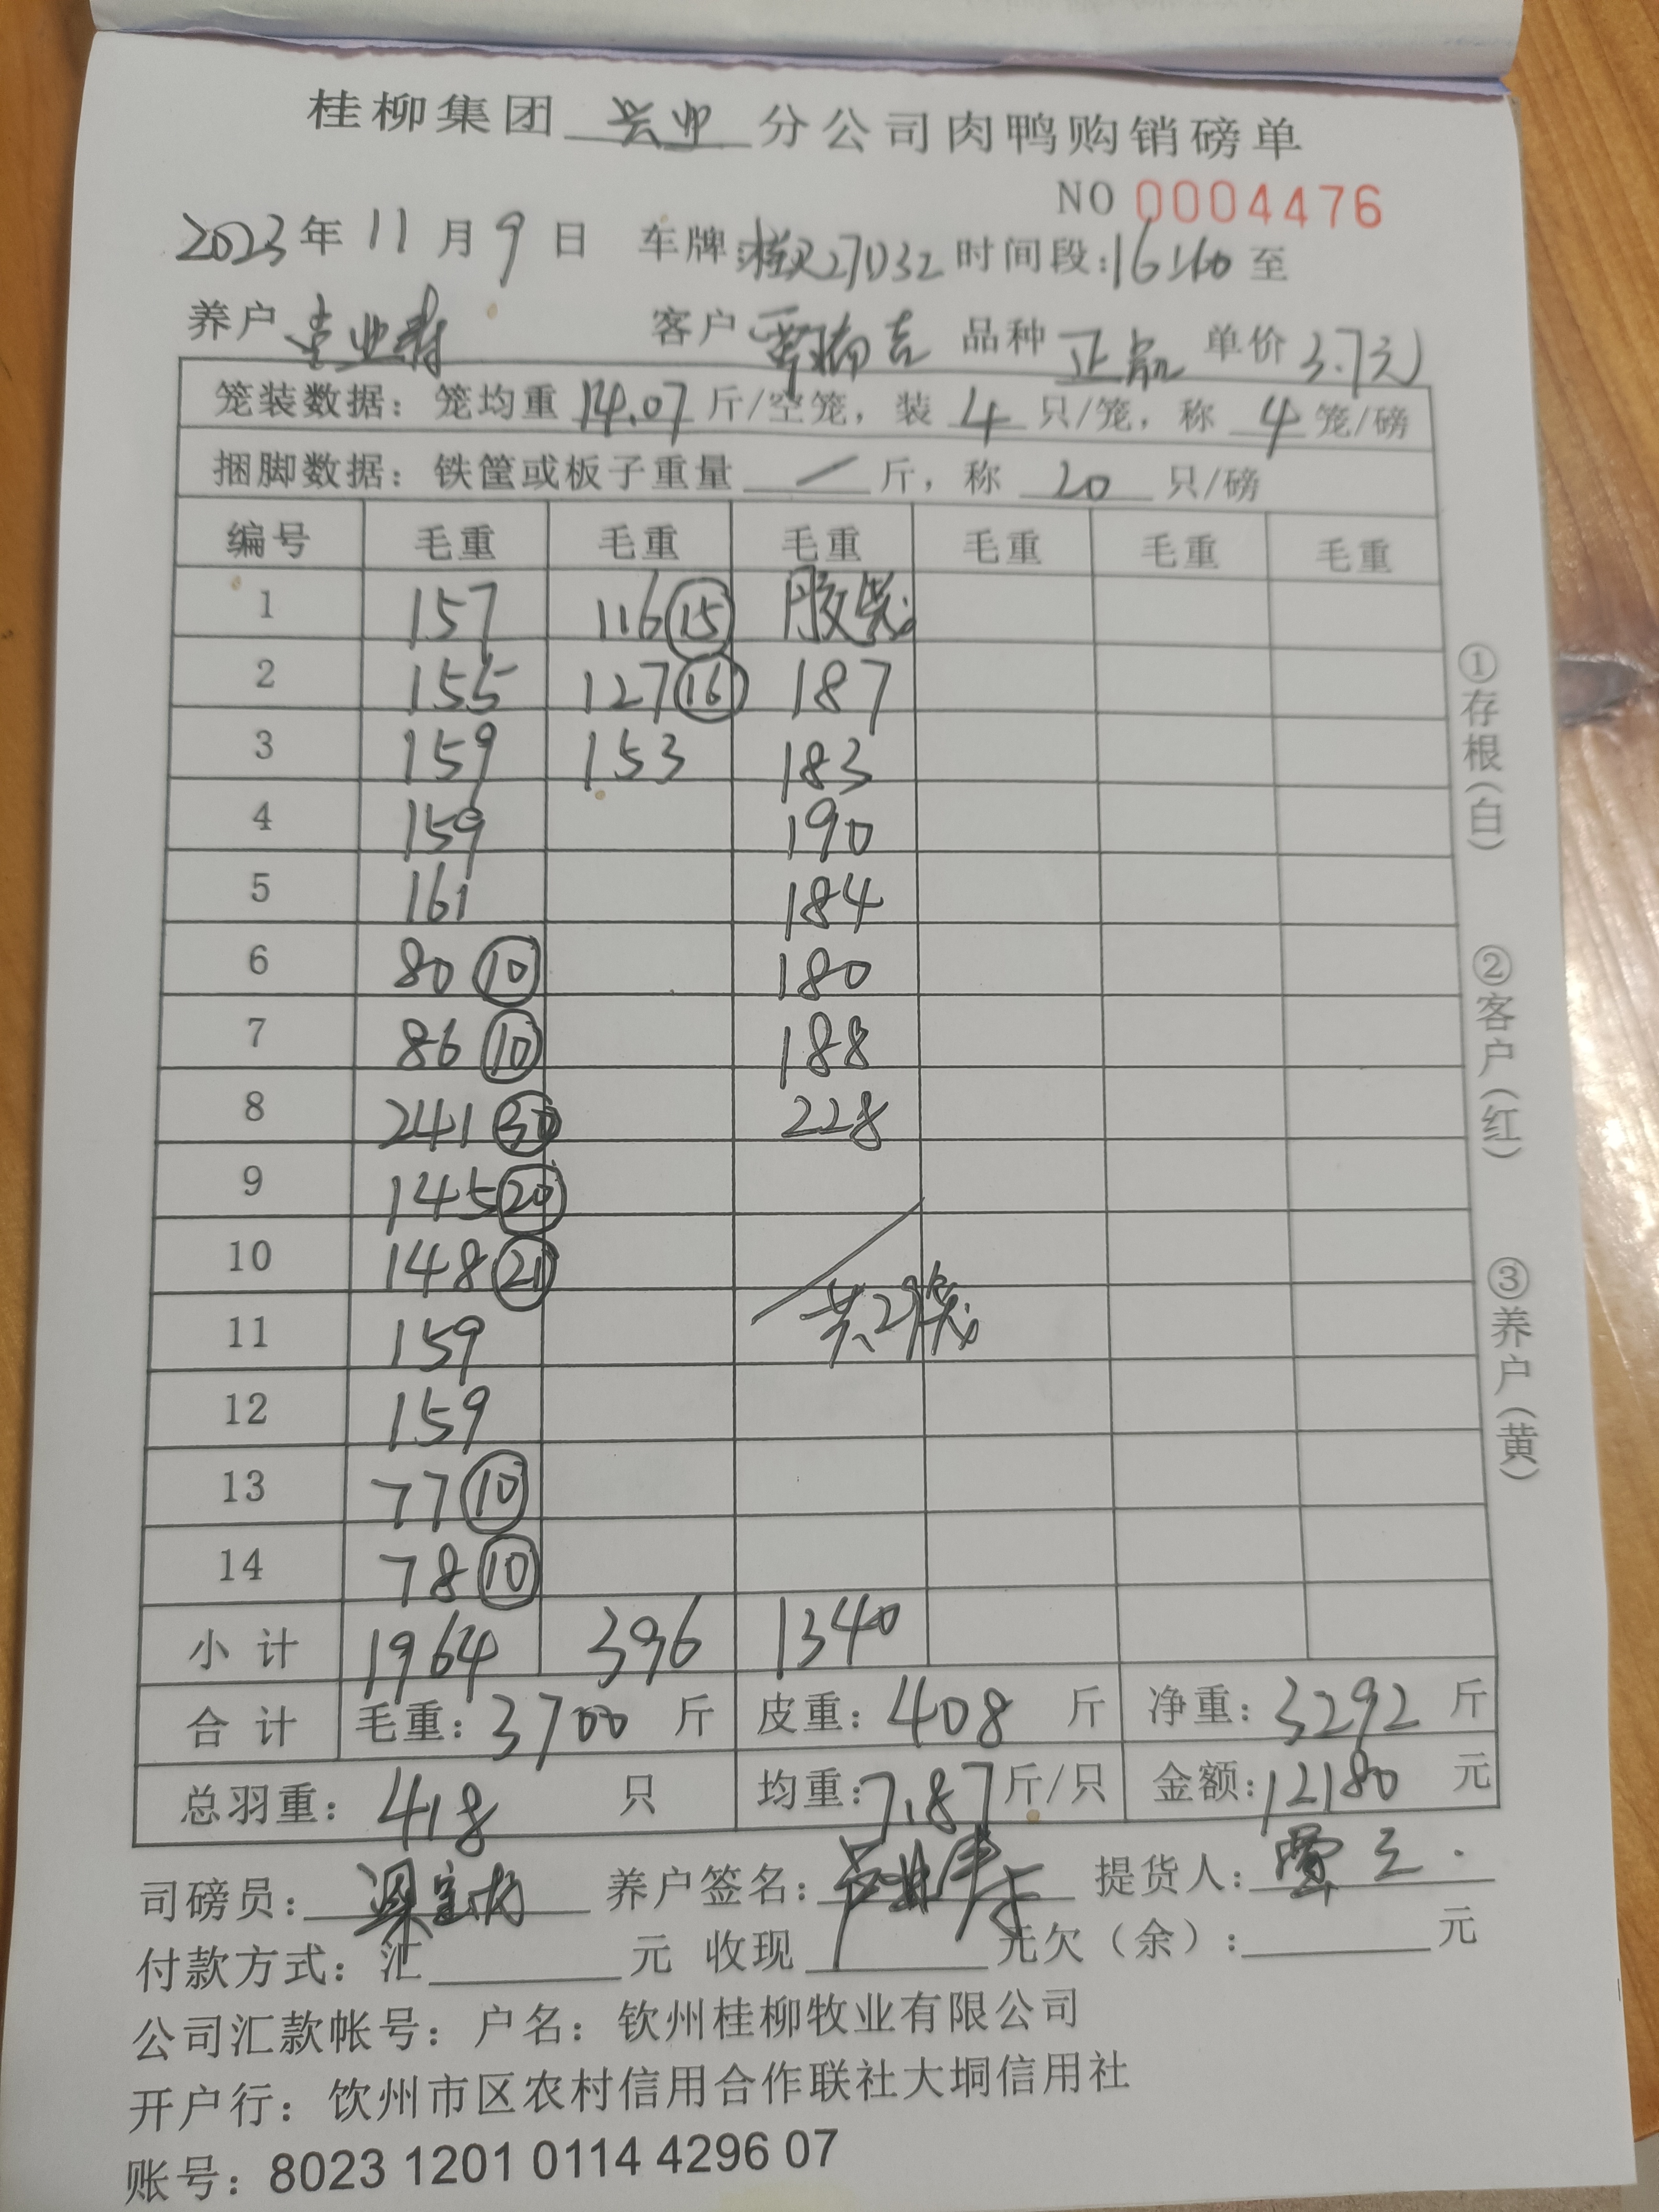 桂柳集团 兴业 分公司肉鸭购销磅单
NO 0004476
2023年 11 月 9 日 车牌: 时间段: 至
养户 客户 覃福吉 品种 正品 单价 3.7元
笼装数据: 笼均重 14.07 斤/空笼, 装 4 只/笼, 称 4 笼/磅
捆脚数据: 铁筐或板子重量 / 斤, 称 20 只/磅
编号 毛重 毛重 毛重 毛重 毛重 毛重
1 157 116 15 胶笼
2 155 127 16 187
3 159 153 183
4 159 190
5 161 184
6 80 10 180
7 86 10 188
8 241 30 228
9 145 20
10 148 21
11 159 共29笼
12 159
13 77 10
14 78 10
小计 1964 396 1340
合计 毛重: 3700 斤 皮重: 408 斤 净重: 3292 斤
总羽重: 418 只 均重: 7.87 斤/只 金额: 12180 元
司磅员: 养户签名: 提货人:
付款方式: 汇 元 收现 元欠(余): 元
公司汇款帐号: 户名: 钦州桂柳牧业有限公司
开户行: 钦州市区农村信用合作联社大垌信用社
账号: 8023 1201 0114 4296 07
①存根(白)
②客户(红)
③养户(黄)